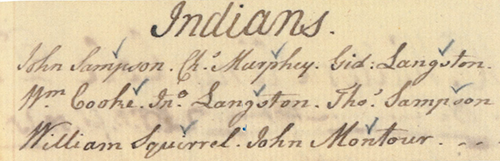 Indians.
John Sampson. Chs. Murphey. Gid: Langston.
Wm Cooke. Jno. Langston. Thos. Sampson
William Squirrel. John Montour. - -